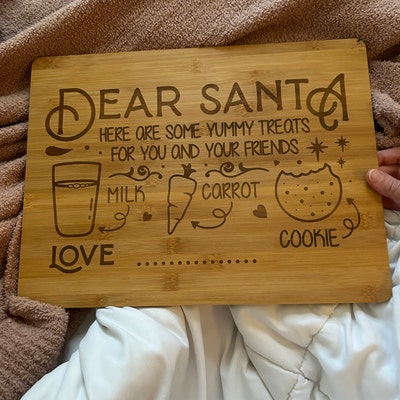 DEAR SANTA
HERE ARE SOME YUMMY TREATS
FOR YOU AND YOUR FRIENDS
MILK
CARROT
COOKIE
LOVE ................